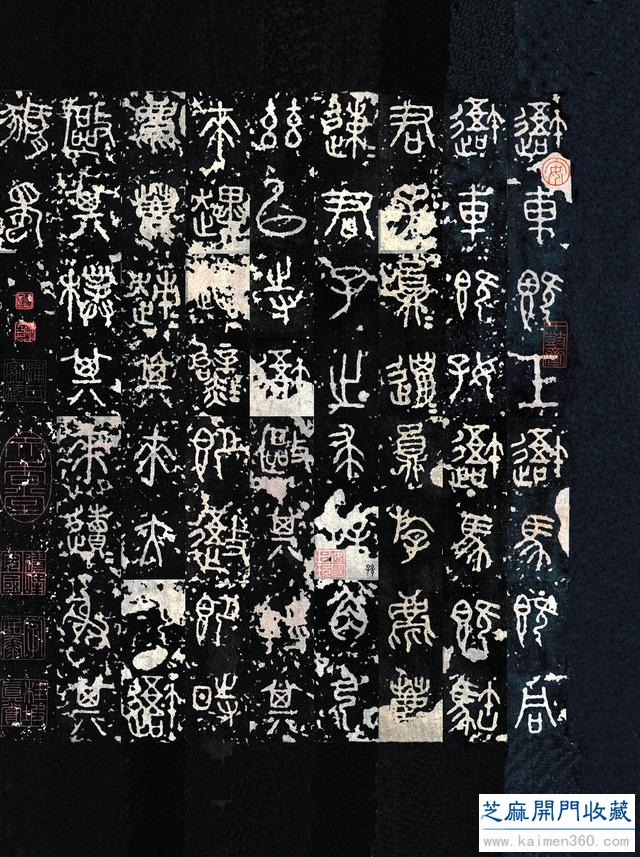 避車既工避馬既同
避車既好避馬既駓
君子員邋員斿麀鹿
速君子之求角弓
茲以寺避敺其特其
來趩即避即時
麀鹿趚其來大避
敺其樸其來射其
豜蜀
芝麻開門收藏
www.kaimen360.com